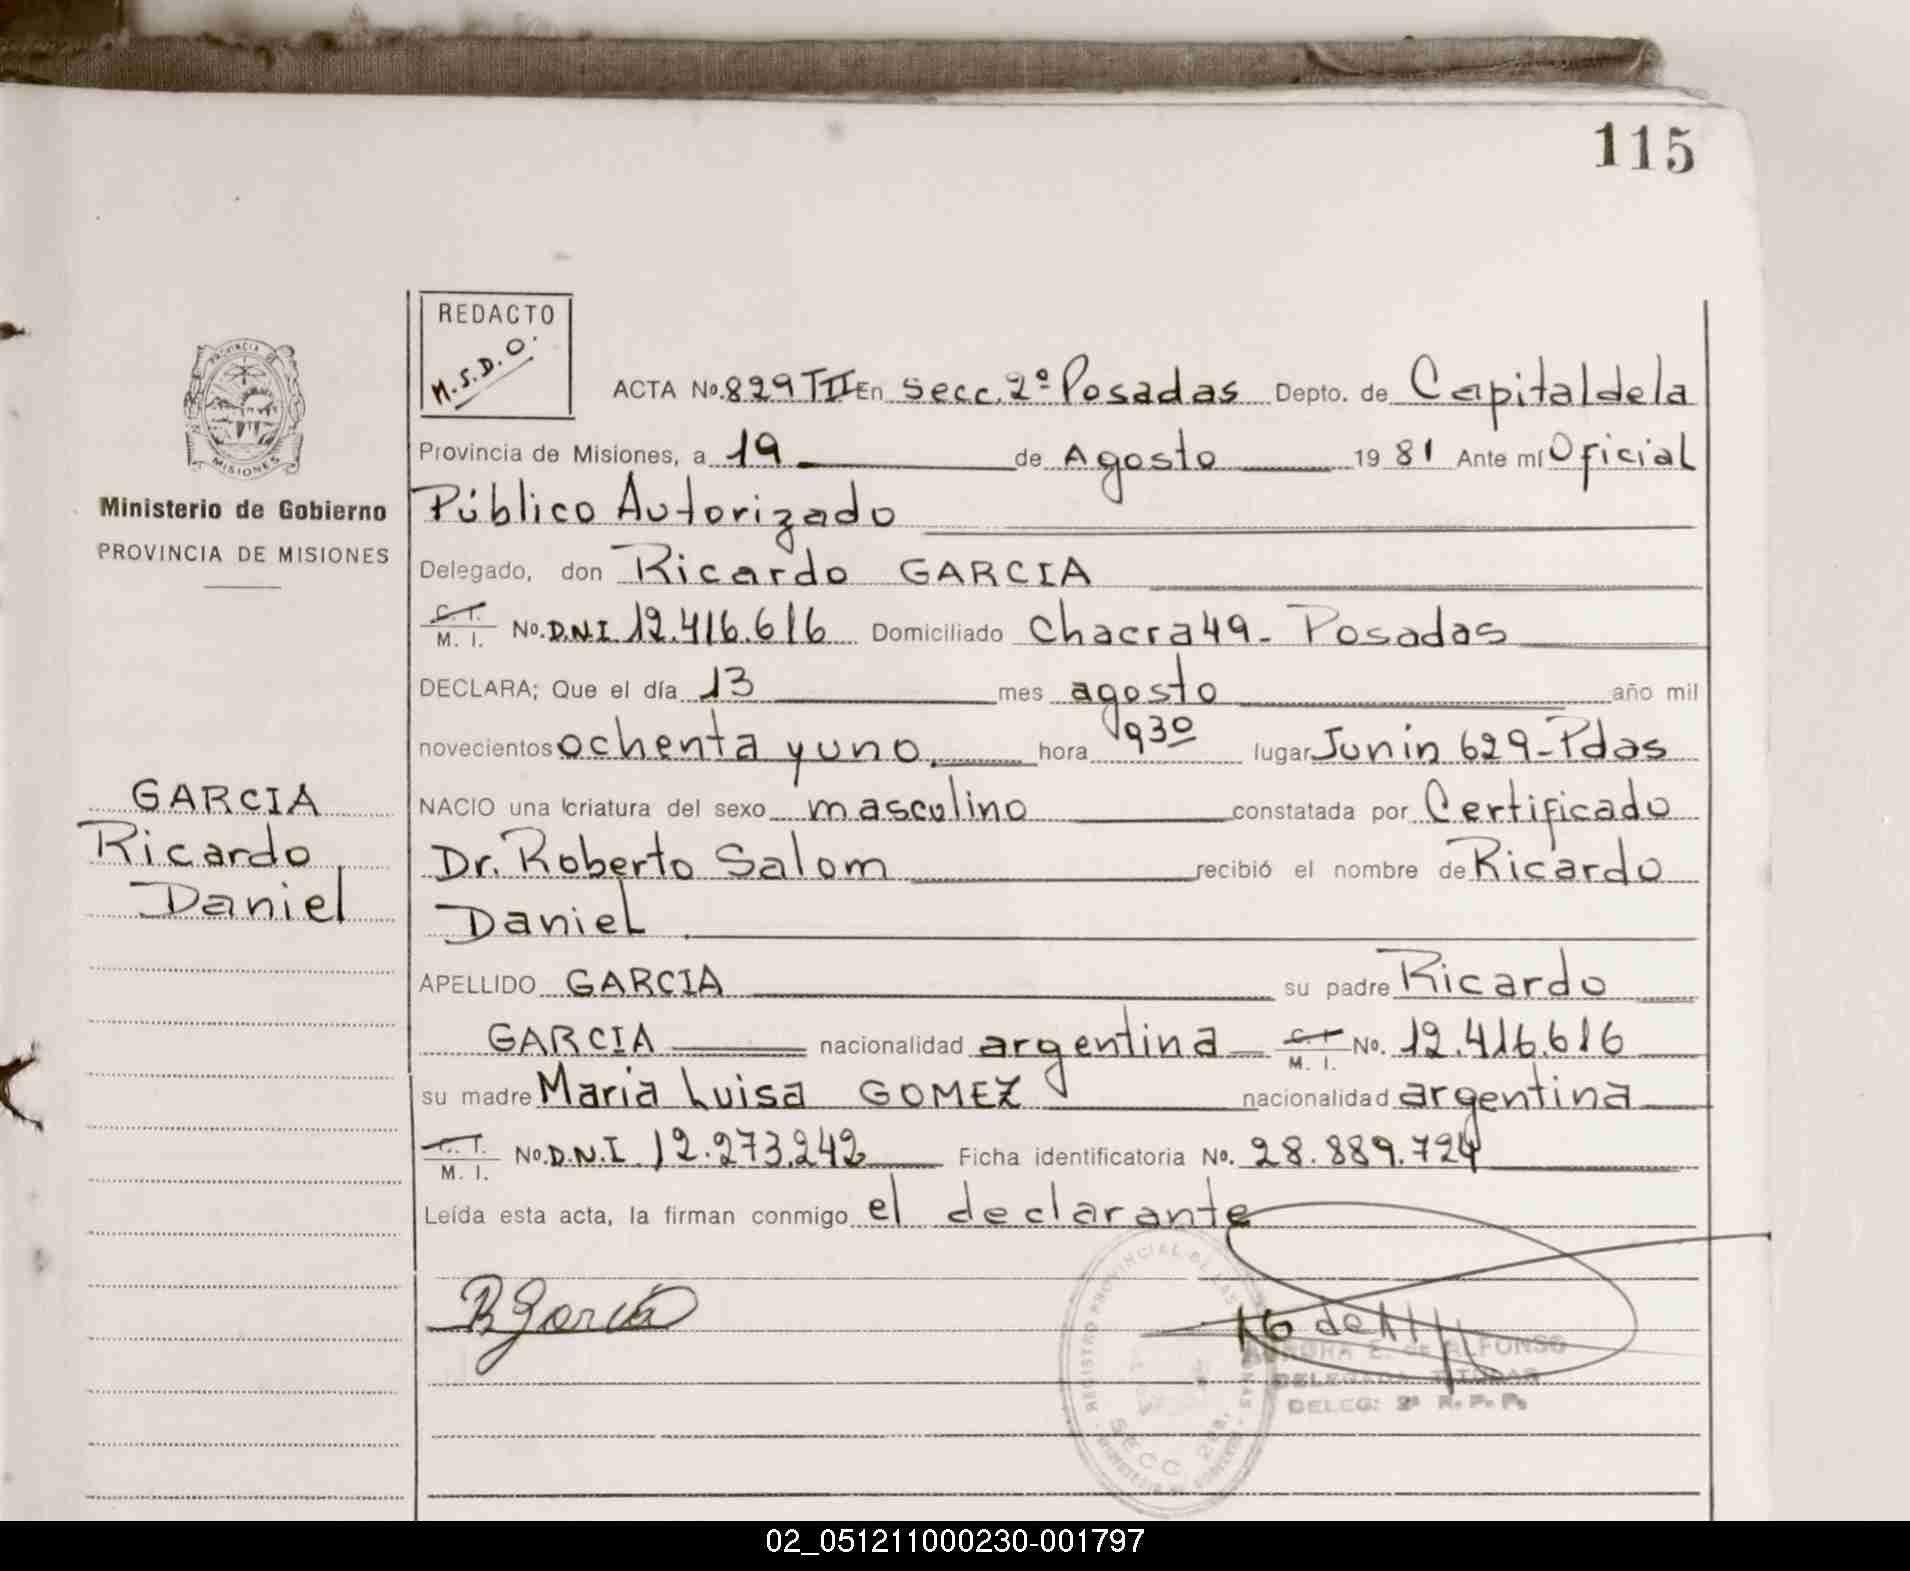 115
REDACTO
M.S.D.O.
PROVINCIA DE
MISIONES
Ministerio de Gobierno
PROVINCIA DE MISIONES
GARCIA
Ricardo
Daniel
ACTA No. 829 TII En Secc. 2º Posadas Depto. de Capital de la
Provincia de Misiones, a 19 de Agosto 1981 Ante mí Oficial
Público Autorizado
Delegado, don Ricardo GARCIA
C. I. M. I. No. D.N.I 12.416.616 Domiciliado Chacra 49- Posadas
DECLARA; Que el día 13 mes agosto año mil
novecientos ochenta y uno hora 930 lugar Junín 629-Pdas
NACIO una criatura del sexo masculino constatada por Certificado
Dr. Roberto Salom recibió el nombre de Ricardo
Daniel
APELLIDO GARCIA su padre Ricardo
GARCIA nacionalidad argentina C. I. M. I. No. 12.416.616
su madre Maria Luisa GOMEZ nacionalidad argentina
C. I. M. I. No. D.N.I 12.273.242 Ficha identificatoria No. 28.889.724
Leída esta acta, la firman conmigo el declarante
R Garcia
REGISTRO PROVINCIAL DE LAS PERSONAS
SECC 2da.
E. de ALFONSO
DELEGADA TITULAR
DELEG: 2ª R. P. P.
02_051211000230-001797